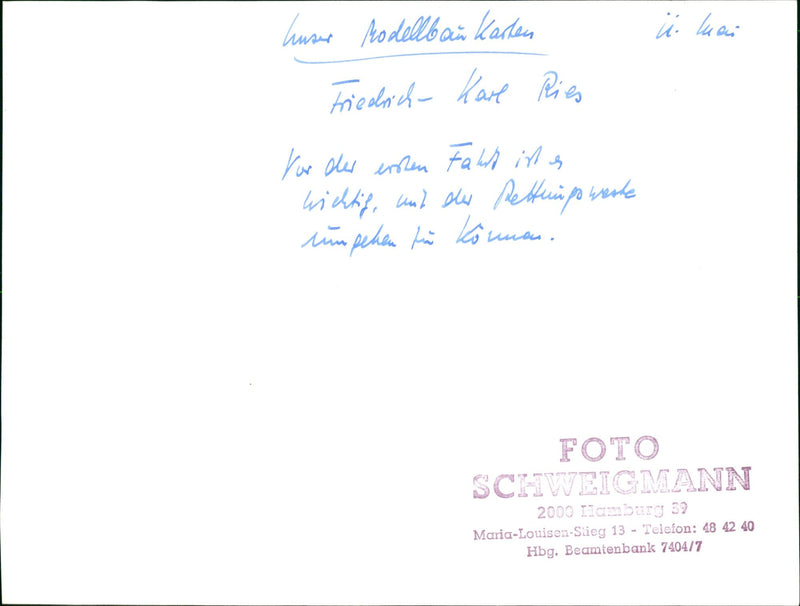 Unser Modellbau Kasten
Friedrich- Karl Ries
Vor der ersten Fahrt ist es
wichtig, mit der Rettungsweste
umgehen zu können.
FOTO
SCHWEIGMANN
2000 Hamburg 39
Maria-Louisen-Stieg 13 - Telefon: 48 42 40
Hbg. Beamtenbank 7404/7